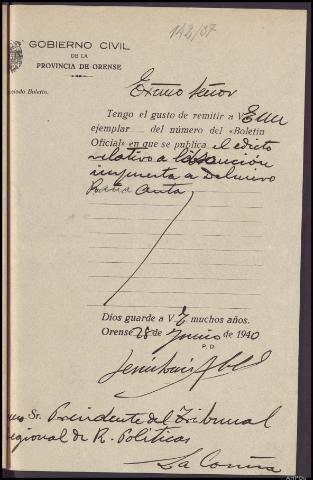 142/37
GOBIERNO CIVIL
DE LA
PROVINCIA DE ORENSE
Boletín.
Excmo Señor
Tengo el gusto de remitir a V E un
ejemplar del número del «Boletín
Oficial» en que se publica el edicto
relativo a la sanción
impuesta a Delmiro
Anta
Dios guarde a V E muchos años.
Orense 28 de Junio de 1940
P. D.
Sr. Presidente del Tribunal
egional de R. Políticas
La Coruña